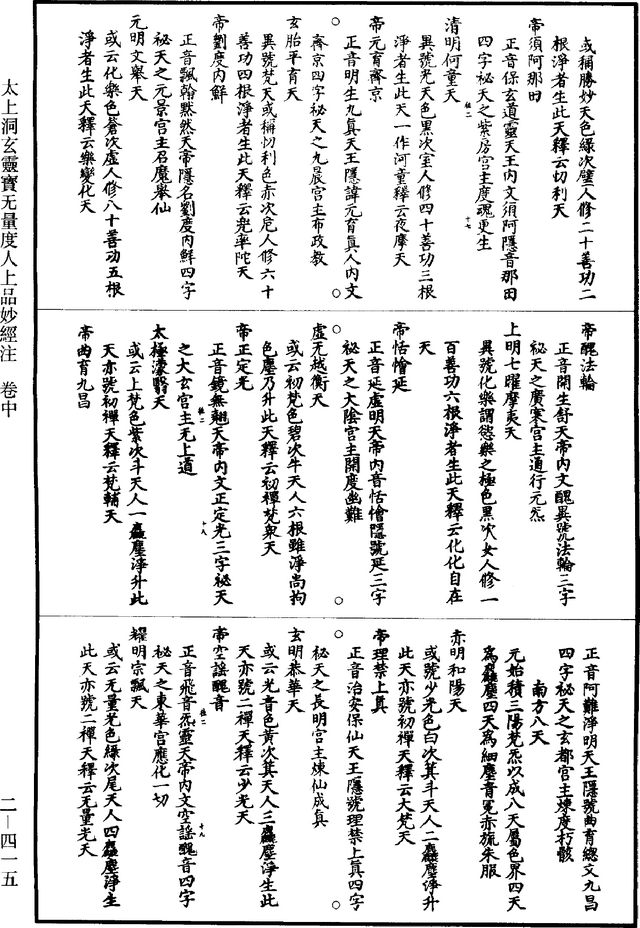 或稱勝妙天色綠次壁人修二十善功二
根淨者生此天釋云忉利天
帝須阿那田
正音保玄道靈天王內文須阿隱音那田
四字秘天之紫房宮主度魂更生
清明何童天
異號光天色黑次室人修四十善功三根
淨者生此天一作河童釋云夜摩天
帝元育齊京
正音明生九真天王隱諱元育真人內文
齊京四字秘天之九晨宮主布政教
玄胎平育天
異號梵天或稱忉利色赤次危人修六十
善功四根淨者生此天釋云兠率陀天
帝劉度內鮮
正音飄翰黙然天帝隱名劉度內鮮四字
秘天之元景宮主召魔舉仙
元明文舉天
或云化樂色蒼次虛人修八十善功五根
淨者生此天釋云樂變化天
帝醜法輪
正音開生舒天帝內文醜異號法輪三字
秘天之廣寒宮主通行元炁
上明七曜摩夷天
異號化樂謂慾樂之極色黑次女人修一
百善功六根淨者生此天釋云化化自在
天
帝恬憺延
正音延虛明天帝內音恬憺隱號延三字
秘天之大陰宮主開度幽難
虛无越衡天
或云初梵色碧次牛天人六根雖淨尚拘
色塵乃升此天釋云初禪梵衆天
帝正定光
正音鏡無翹天帝內文正定光三字秘天
之大玄宮主无上道
太極濛翳天
或云上梵色紫次斗天人一麤塵淨升此
天亦號初禪天釋云梵輔天
帝曲育九昌
正音阿難淨明天王隱號曲育總文九昌
四字秘天之玄都宮主煉度朽骸
南方八天
元始積三陽梵炁以成八天屬色界四天
為麤塵四天為細塵青冕赤旒朱服
赤明和陽天
或號少光色白次箕斗天人二麤塵淨升
此天亦號初禪天釋云大梵天
帝理禁上真
正音治安保仙天王隱號理禁上真四字
秘天之長明宮主煉仙成真
玄明恭華天
或云光音色黃次箕天人三麤塵淨生此
天亦號二禪天釋云少光天
帝空謡醜音
正音飛音炁靈天帝內文空謡醜音四字
秘天之東華宮應化一切
耀明宗飄天
或云无量光色綠次尾天人四麤塵淨生
此天亦號二禪天釋云无量光天
太上洞玄靈寶无量度人上品妙經注 卷中
二—四一五